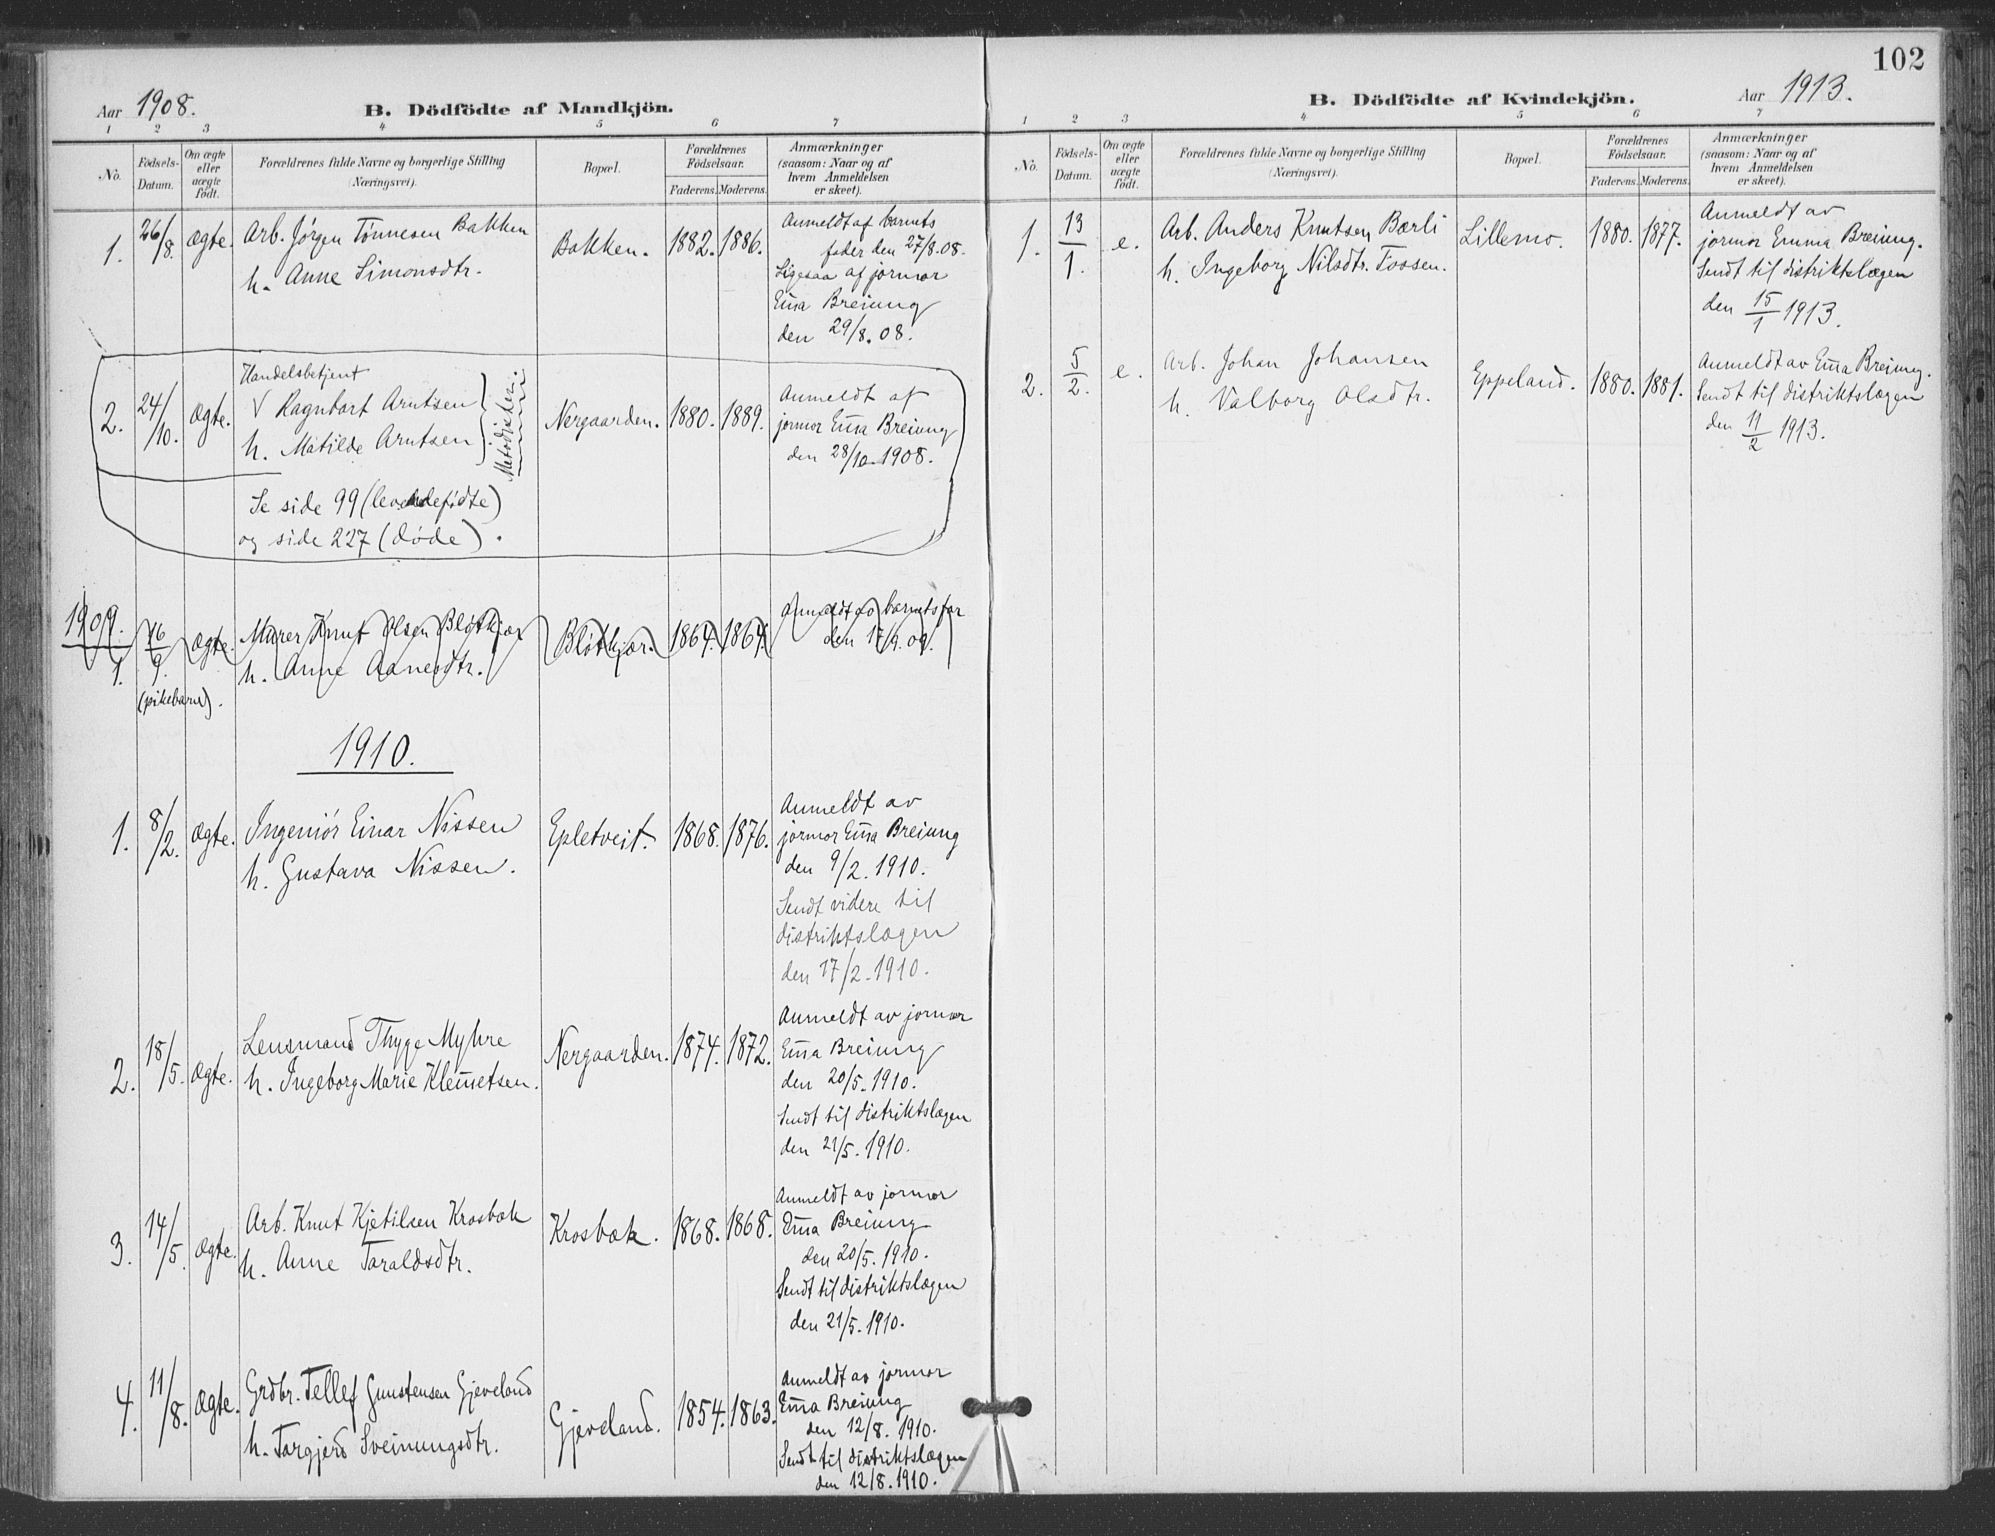 Aar 1908.
B. Dödfödte af Mandkjön.
1 2 3 4 5 6 7
No.
Födsels-Datum.
Om ægte eller uægte födt.
Forældrenes fulde Navne og borgerlige Stilling
(Næringsvei).
Bopæl.
Forældrenes Födselsaar.
Faderens. Moderens.
Anmærkninger
(saasom: Naar og af
hvem Anmeldelsen
er skeet).
1. 26/8. ægte. Arb. Jørgen Tönnesen Bakken
h. Anne Simonsdtr.
Bakken. 1882. 1886.
Anmeldt af barnets
fader den 27/8.08.
Ligesaa af jormor
Em̄a Breiung
den 29/8.08.
2. 24/10. ægte.
Handelsbetjent
V Ragnbart Arntsen
h. Matilde Arntsen
Metodister.
Nergaarden. 1880. 1889.
Anmeldt af
jormor Em̄a Breiung
den 28/10.1908.
Se side 99 (levendefødte)
og side 227 (døde).
1909.
1. 16/9. ægte. Murer Knut Olsen Bløtkjær
h. Anne Aanesdtr.
(pikebarn).
Bløtkjær. 1864. 1864.
Anmeldt av barnets far
den 17/9.09.
1910.
1. 8/2. ægte. Ingeniör Einar Nissen
h. Gustava Nissen.
Epletveit. 1868. 1876.
Anmeldt av
jormor Em̄a Breiung
den 9/2.1910.
Sendt videre til
distriktslægen
den 17/2.1910.
2. 18/5. ægte. Lensmand Thyge Myhre
h. Ingeborg Marie Klem̄etsen.
Nergaarden. 1874. 1872.
Anmeldt av jormor
Em̄a Breiung
den 20/5.1910.
Sendt til distriktslægen
den 21/5.1910.
3. 14/5. ægte. Arb. Knut Kjetilsen Krosbæk
h. Anne Taraldsdtr.
Krosbæk. 1868. 1868.
Anmeldt av jormor
Em̄a Breiung
den 20/5.1910.
Sendt til distriktslægen
den 21/5.1910.
4. 11/8. ægte. Grdbr. Tellef Gunstensen Gjeveland
h. Targjerd Sveinungsdtr.
Gjeveland. 1854. 1863.
Anmeldt av jormor
Em̄a Breiung
den 12/8.1910.
Sendt til distriktslægen
den 12/8.1910.
102
B. Dödfödte af Kvindekjön.
Aar 1913.
1 2 3 4 5 6 7
No.
Födsels-Datum.
Om ægte eller uægte födt.
Forældrenes fulde Navne og borgerlige Stilling
(Næringsvei).
Bopæl.
Forældrenes Födselsaar.
Faderens. Moderens.
Anmærkninger
(saasom: Naar og af
hvem Anmeldelsen
er skeet).
1. 13/1. e. Arb. Anders Knutsen Bærli
h. Ingeborg Nilsdtr. Tossen.
Lillemo. 1880. 1877.
Anmeldt av
jormor Emma Breiung.
Sendt til distriktslægen
den 15/1 1913.
2. 5/2. e. Arb. Johan Johansen
h. Valborg Olsdtr.
Eppeland. 1880. 1881.
Anmeldt av Em̄a Breiung.
Sendt til distriktslægen
den 11/2 1913.